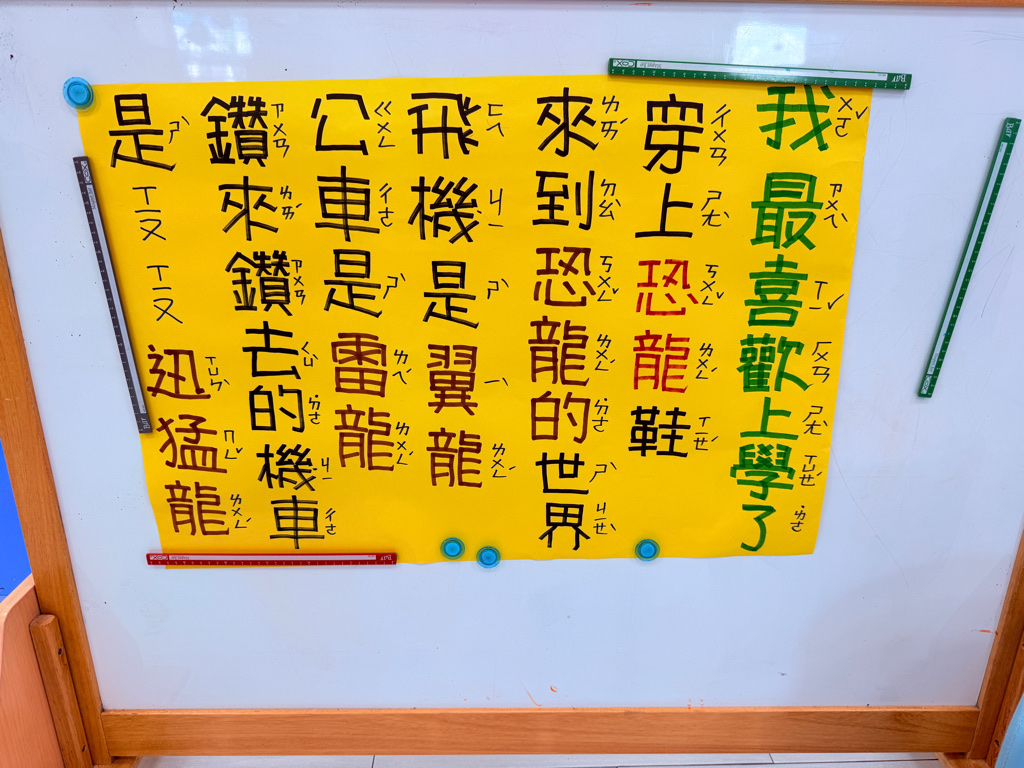 我最喜歡上學了
穿上恐龍鞋
來到恐龍的世界
飛機是翼龍
公車是雷龍
鑽來鑽去的機車
是ㄒㄧㄡㄒㄧㄡ迅猛龍